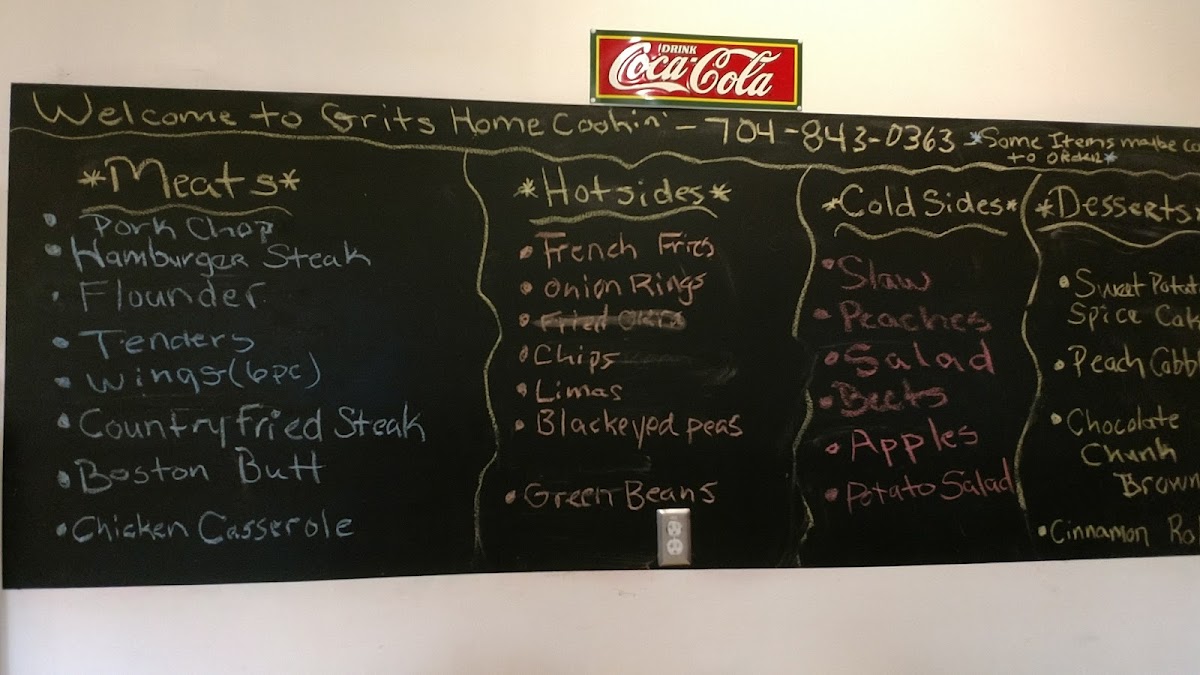 DRINK
Coca-Cola
Welcome to Grits Home Cookin' - 704-843-0363 *Some Items maybe
to ORder*
*Meats*
• Pork Chop
• Hamburger Steak
• Flounder
• Tenders
• Wings (6pc)
• Country Fried Steak
• Boston Butt
• Chicken Casserole
*Hot sides*
• French Fries
• Onion Rings
• Fried Okra
• Chips
• Limas
• Blackeyed peas
• Green Beans
*Cold Sides*
• Slaw
• Peaches
• Salad
• Beets
• Apples
• Potato Salad
*Desserts
• Sweet Potat
Spice Cak
• Peach Cobbl
• Chocolate
Chunk
Brown
• Cinnamon Ro